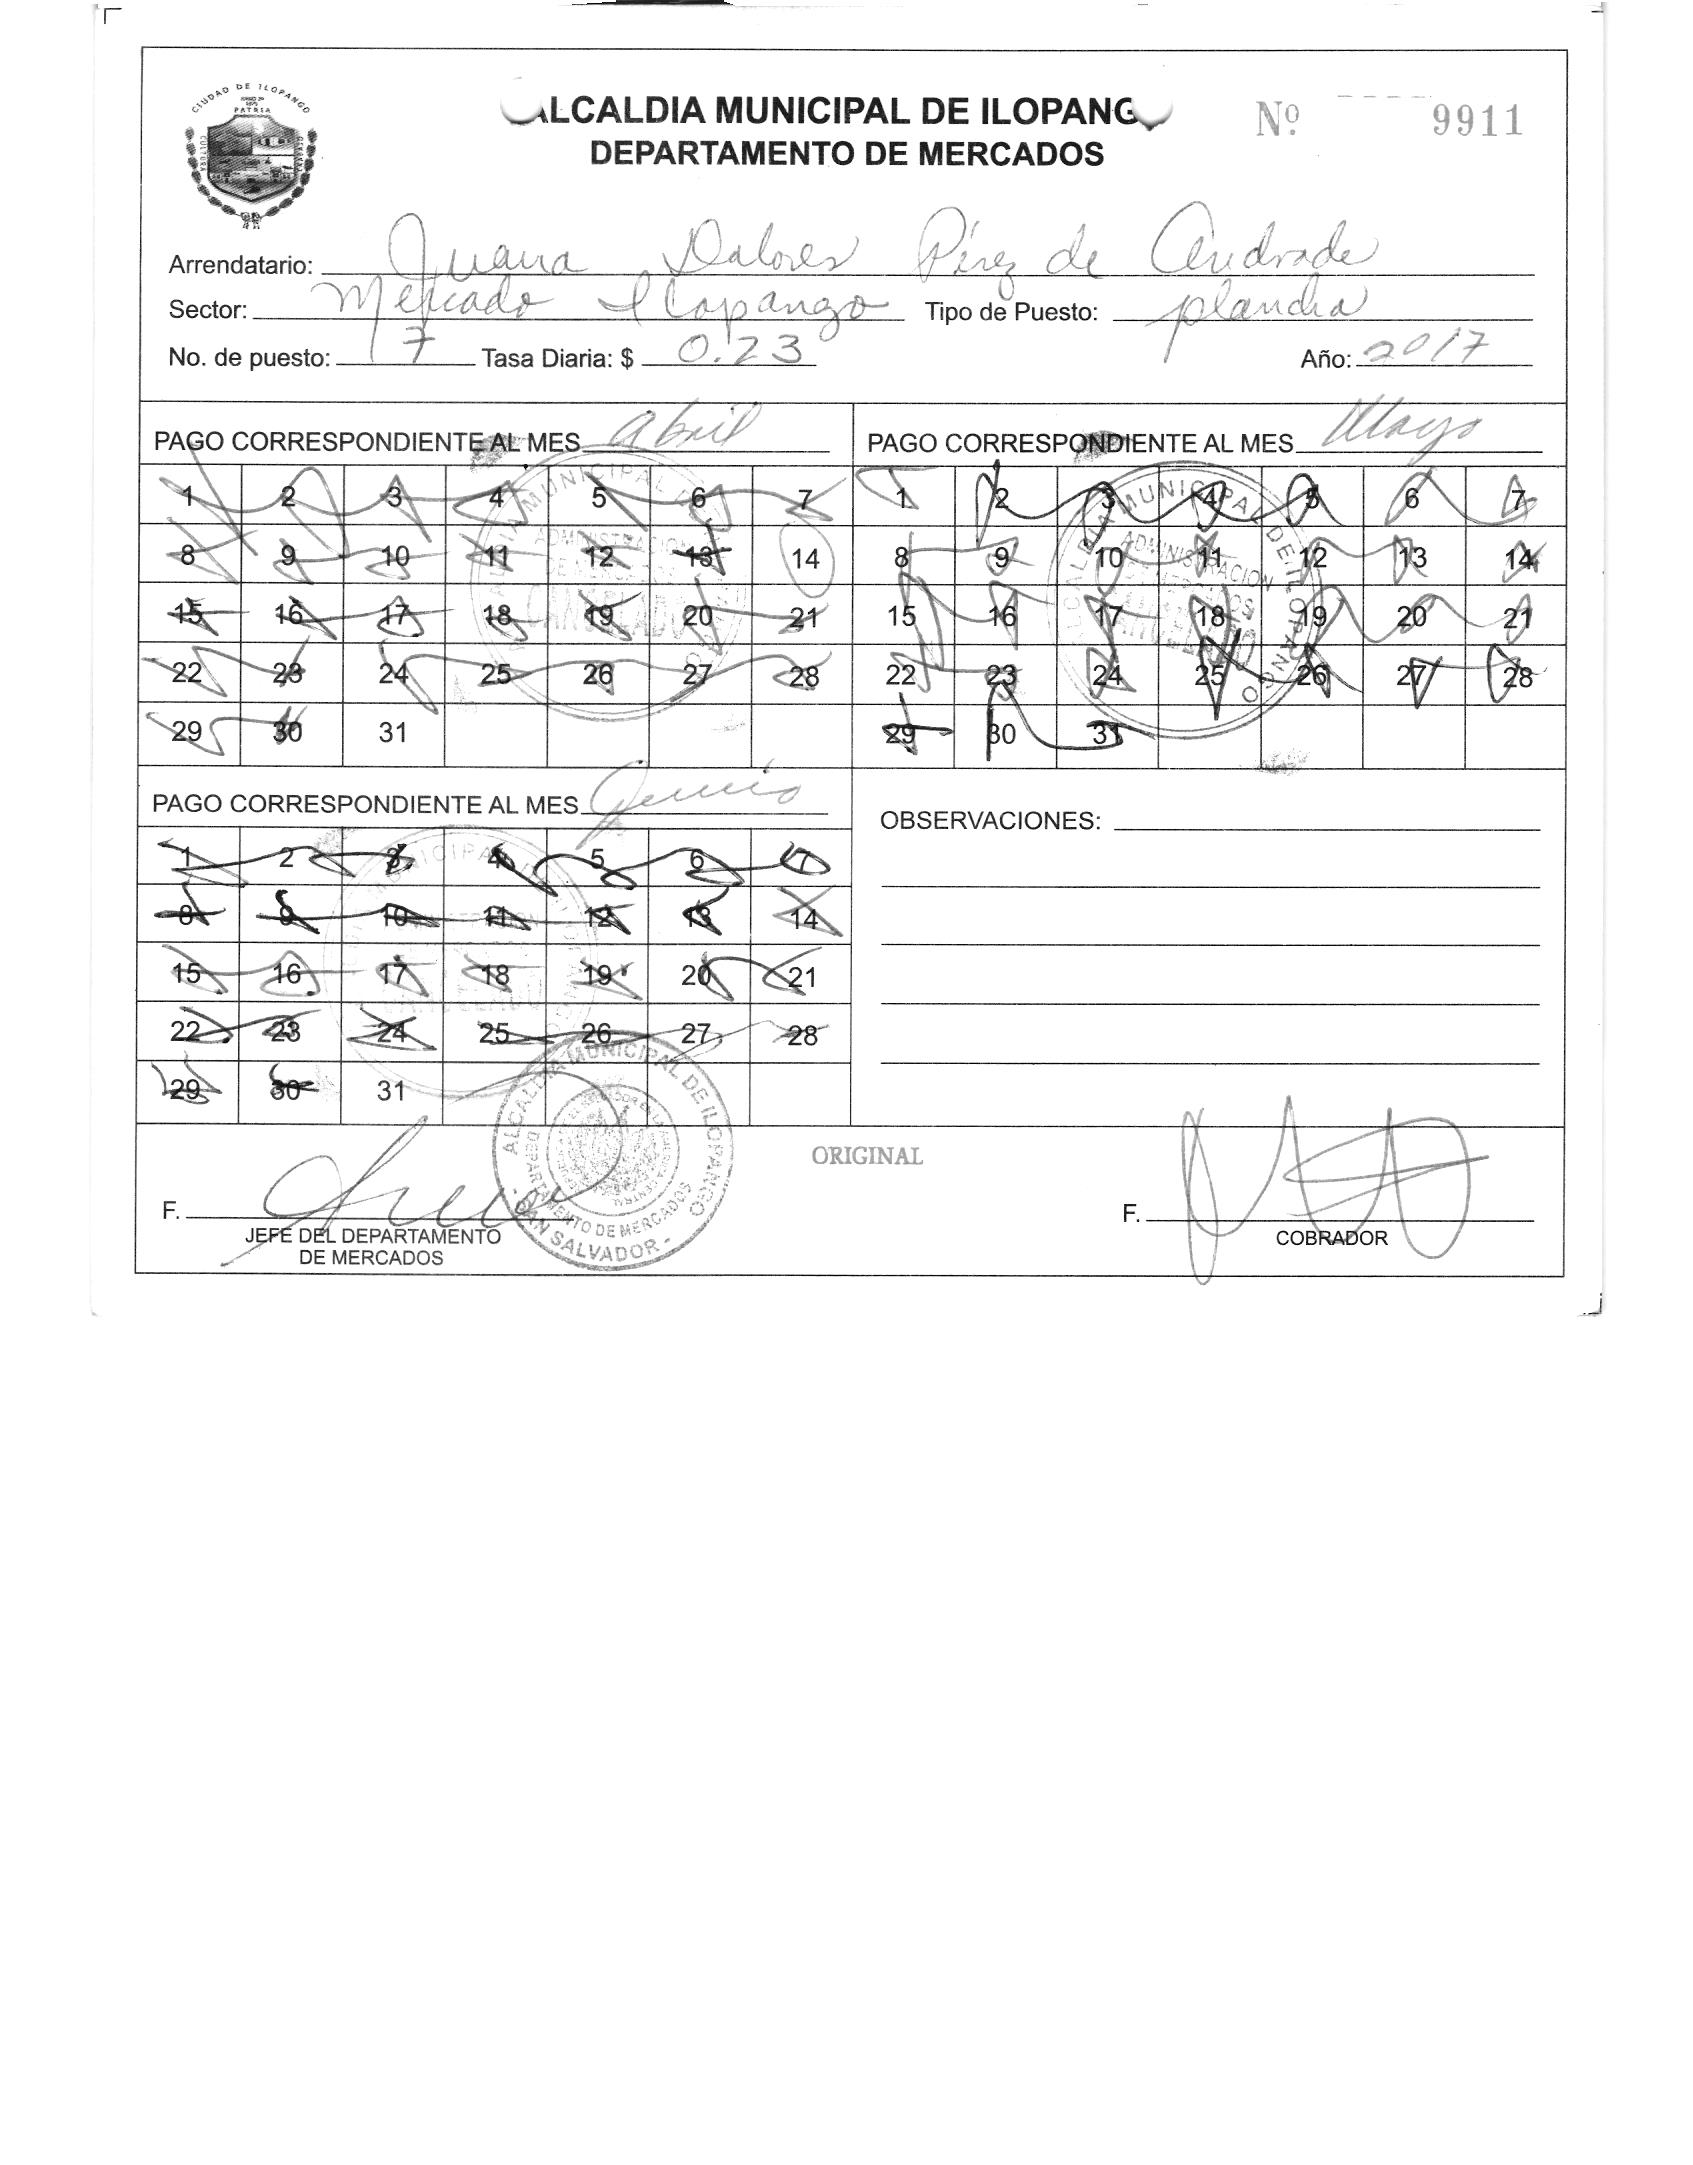 CIUDAD DE ILOPANGO
PATRIA
CULTURA
ALCALDIA MUNICIPAL DE ILOPANGO
DEPARTAMENTO DE MERCADOS
Nº 9911
Arrendatario: Juana Dolores Pérez de Andrade
Sector: Mercado Ilopango Tipo de Puesto: plancha
No. de puesto: 17 Tasa Diaria: $ 0.23 Año: 2017
PAGO CORRESPONDIENTE AL MES Abril
1 2 3 4 5 6 7
8 9 10 11 12 13 14
15 16 17 18 19 20 21
22 23 24 25 26 27 28
29 30 31
ADMINISTRACION
CANCELADO
PAGO CORRESPONDIENTE AL MES Mayo
1 2 3 4 5 6 7
8 9 10 11 12 13 14
15 16 17 18 19 20 21
22 23 24 25 26 27 28
29 30 31
ALCALDIA MUNICIPAL DE ILOPANGO
ADMINISTRACION
PAGO CORRESPONDIENTE AL MES Junio
1 2 3 4 5 6 7
8 9 10 11 12 13 14
15 16 17 18 19 20 21
22 23 24 25 26 27 28
29 30 31
OBSERVACIONES:
ORIGINAL
ALCALDIA MUNICIPAL DE ILOPANGO
DEPARTAMENTO DE MERCADOS
- SAN SALVADOR -
F.
JEFE DEL DEPARTAMENTO
DE MERCADOS
F.
COBRADOR